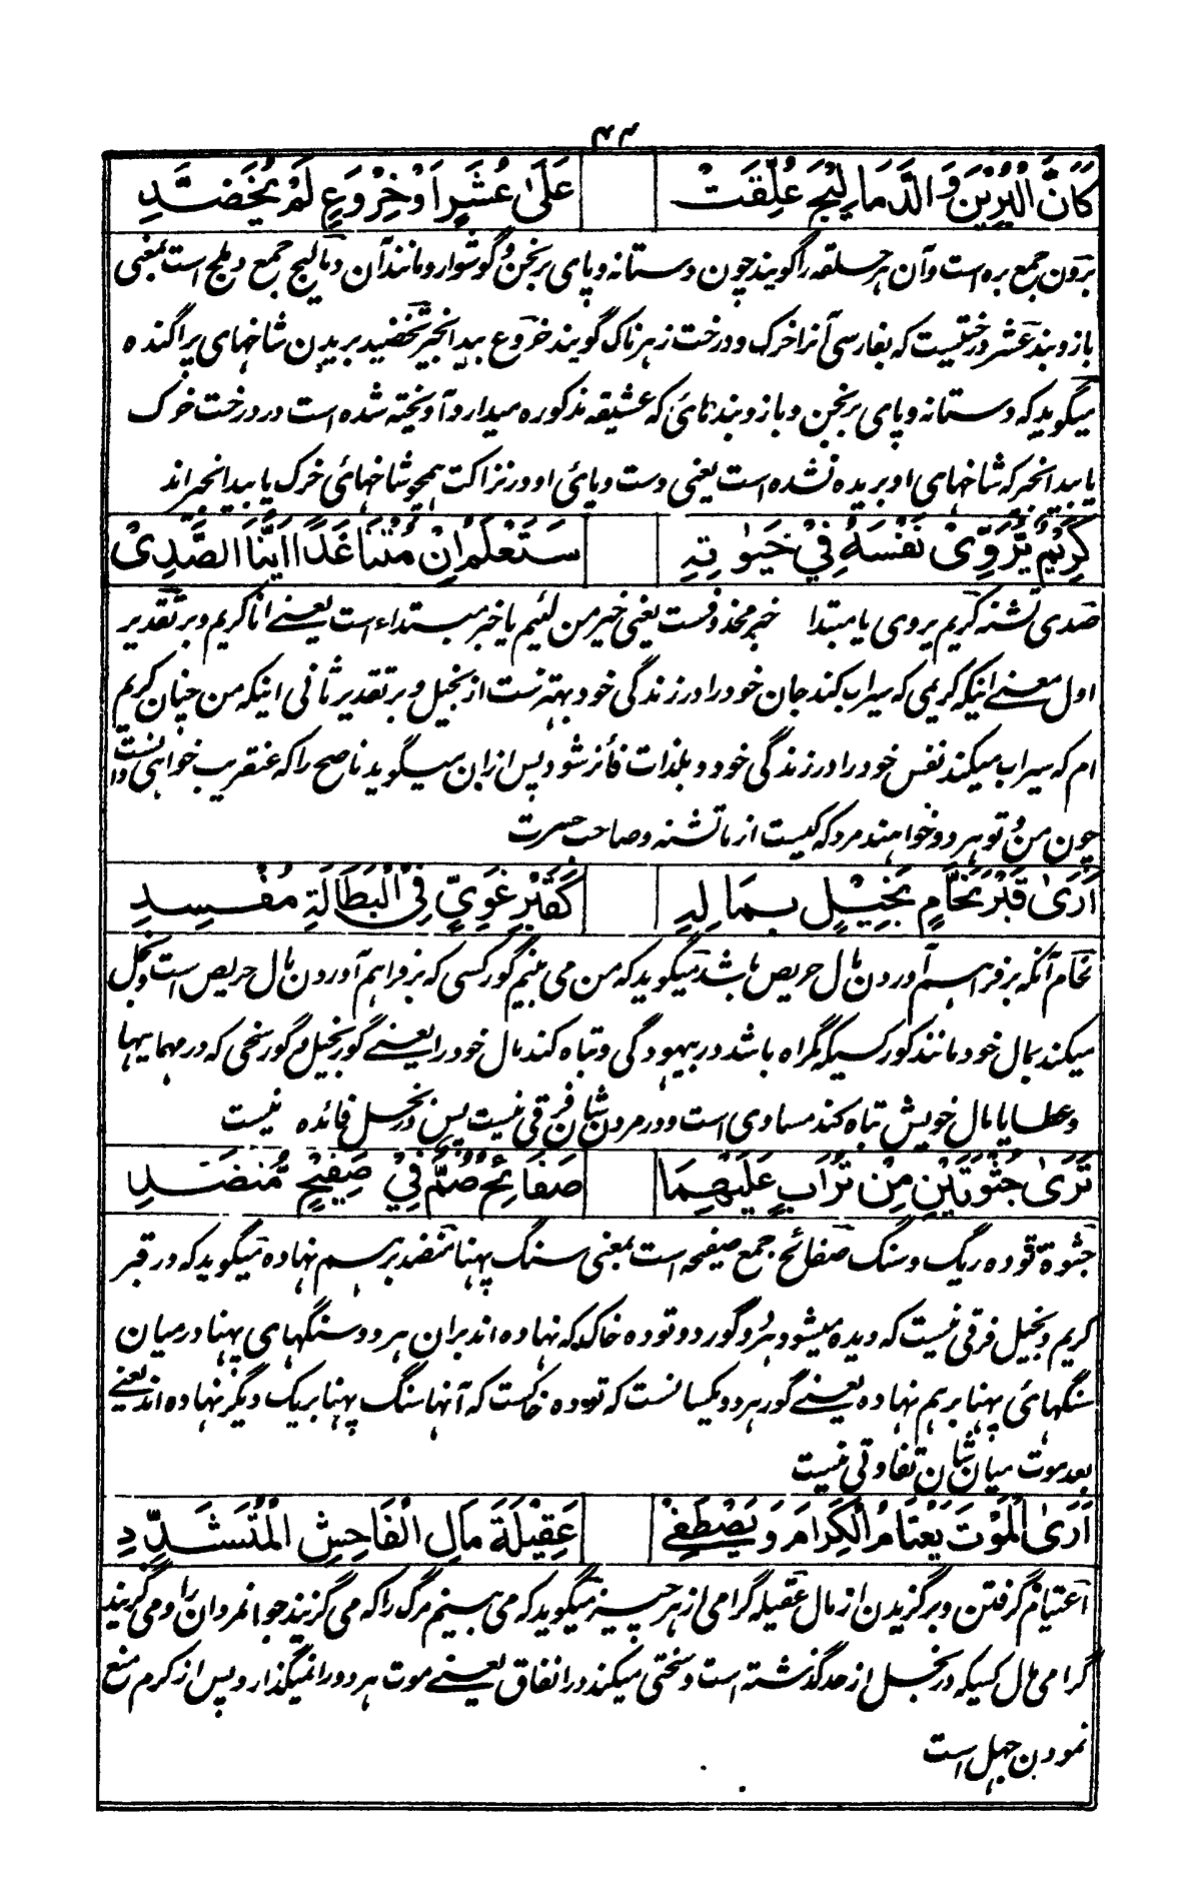 ۴۴
كَاَنَّ الْبُرِيْنَ وَ الدَّمَا لِيْجَ عُلِّقَتْ عَلَىٰ عُشَرٍ اَوْ خِرْوَعٍ لَمْ يُخَضَّدِ
برون جمع بره است وآن هر حلقه را گویند چون دستانه و پای برنجن و گوشوار و مانند آن دمالیج جمع دملج است بمعنی
بازوبند عشر درختیست که بفارسی آنرا خرک و درخت زهرناک گویند خروع بید انجیر تخضید بریدن شاخهای پراگنده
میگوید که دستانه و پای برنجن و بازوبندهائی که عشیقه مذکوره میدارد آویخته شده است در درخت خرک
یا بید انجیر که شاخهای او بریده نشده است یعنی دست و پائی او در نزاکت همچو شاخهائی خرک یا بید انجیر اند
كَرِيْمٌ يُّرَوِّىْ نَفْسَهٗ فِيْ حَيٰوتِهٖ سَتَعْلَمُ اِنْ مُتْنَا غَدًا اَيُّنَا الصَّدِىْ
صدی تشنه کریم یروی یا مبتدا خبر محذوفست یعنی خیر من لئیم یا خبر مبتداء است یعنے انا کریم و بر تقدیر
اول معنے اینکه کریمی که سیراب کند جان خود را در زندگی خود بهترست از بخیل و بر تقدیر ثانی اینکه من چنان کریم
ام که سیراب میکند نفس خود را در زندگی خود و بلذات فائز شود پس ازان میگوید ناصح را که عنقریب خواهی دانست
چون من و تو هر دو خواهند مرد که کیست از ما تشنه و صاحب حسرت
اَرَىٰ قَبْرَ نَحَّامٍ بَخِيْلٍ بِمَالِهٖ كَقَبْرِ غَوِيٍّ فِى الْبَطَالَةِ مُفْسِدِ
نحام آنکه بر فراهم آوردن مال حریص باشد میگوید که من می بینم گور کسی که بر فراهم آوردن مال حریص است و بخل
میکند بمال خود مانند گور کسیکه گمراه باشد در بیهودگی و تباه کند مال خود را یعنے گور بخیل و گور سخی که در مهمانیها
و عطایا مال خویش تباه کند مساوی است و در مردن شان فرقی نیست پس در بخل فائده نیست
تَرَىٰ جُثْوَتَيْنِ مِنْ تُرَابٍ عَلَيْهِمَا صَفَائِحُ صُمٌّ فِيْ صَفِيْحٍ مُّنَضَّدِ
جثوة توده ریگ و سنگ صفائح جمع صفیحه است بمعنی سنگ پهنا منضد برهم نهاده میگوید که در قبر
کریم و بخیل فرقی نیست که دیده میشود هر دو گور دو توده خاک که نهاده اند بران هر دو سنگهای پهنا درمیان
سنگهائی پهنا برهم نهاده یعنے گور هر دو یکسانست که توده خاکست که آنها سنگ پهنا بر یک دیگر نهاده اند یعنے
بعد موت میان شان تفاوتی نیست
اَرَى الْمَوْتَ يَعْتَامُ الْكِرَامَ وَ يَصْطَفِىْ عَقِيْلَةَ مَالِ الْفَاحِشِ الْمُتَشَدِّدِ
اعتیام گرفتن و برگزیدن از مال عقیله گرامی از هر چیز میگوید که می بینم مرگ را که می گزیند جوانمردان را و می گزیند
گرامی مال کسیکه در بخل از حد گذشته است و سختی میکند در انفاق یعنے موت هر دو را نمیگذارد پس از کرم منع
نمودن جهل است